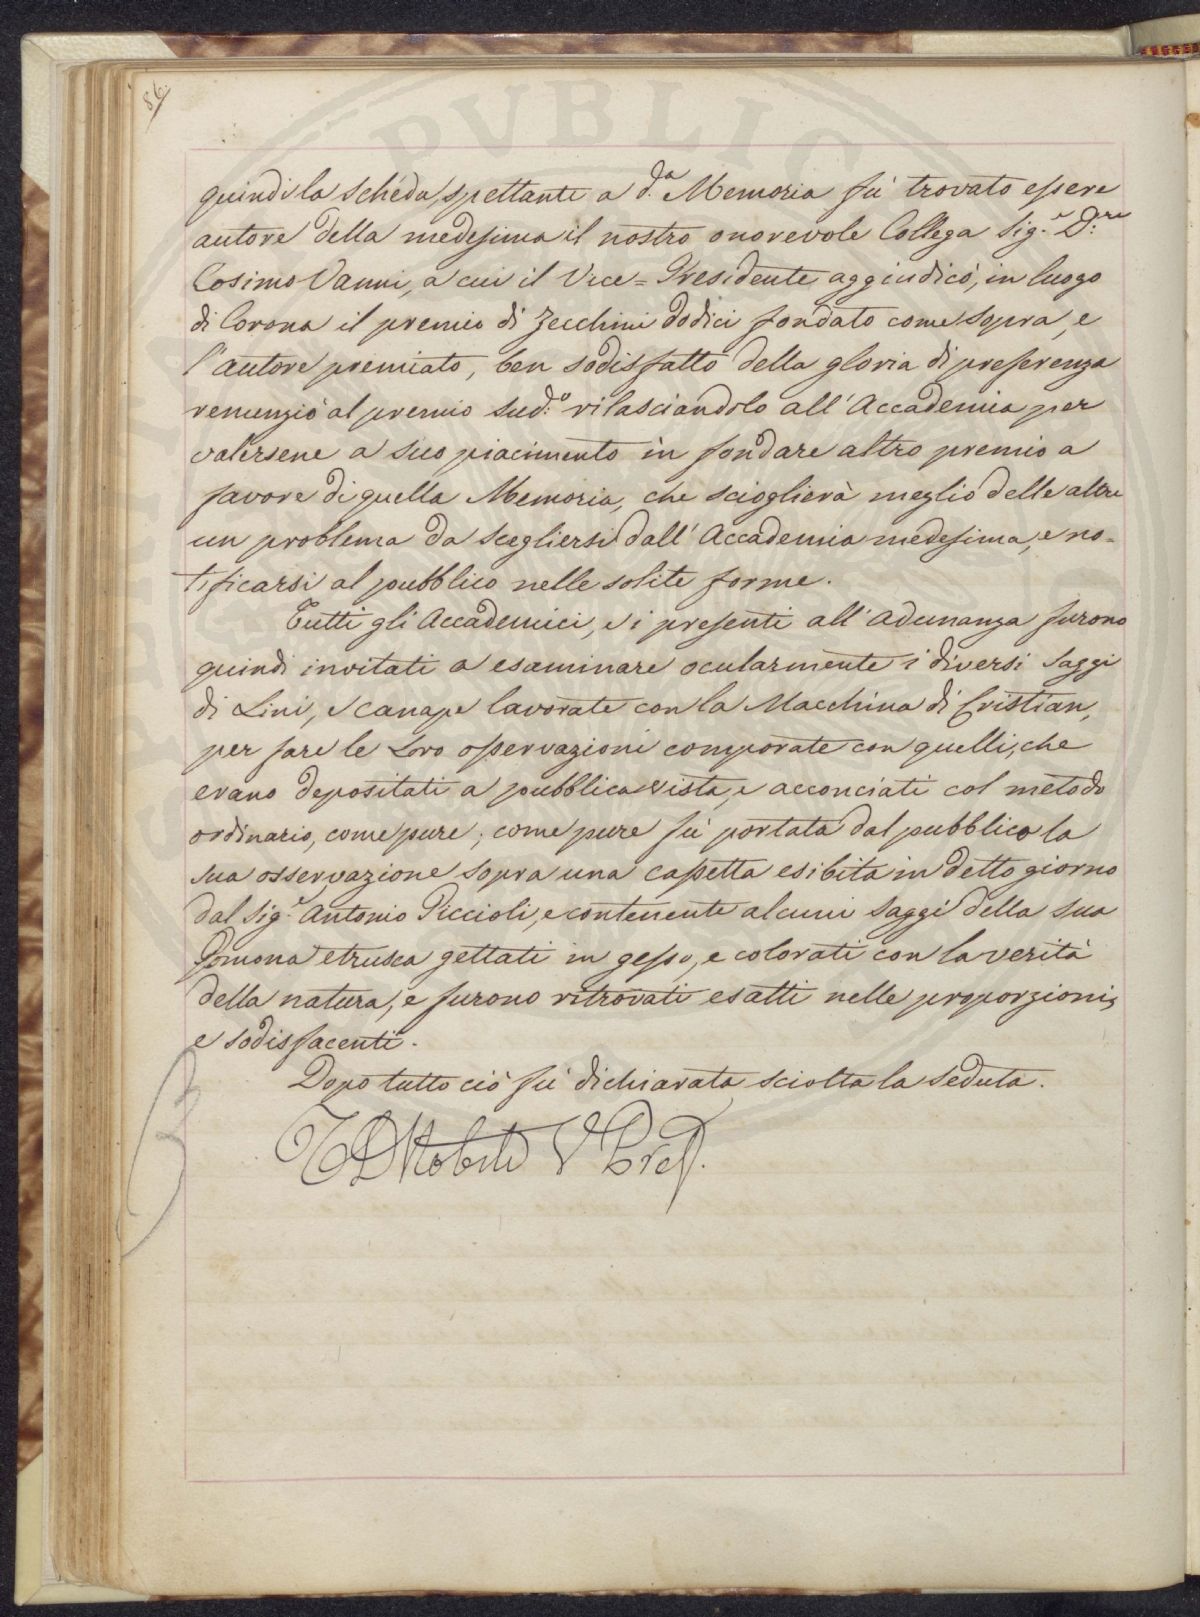 86.
quindi la scheda spettante a d.ª Memoria fù trovato essere
autore della medesima il nostro onorevole Collega Sig.e D.re
Cosimo Vanni, a cui il Vice=Presidente aggiudicò, in luogo
di Corona il premio di Zecchini dodici fondato come sopra, e
l'autore premiato, ben sodisfatto della gloria di preferenza
renunziò al premio sud.o rilasciandolo all'Accademia per
valersene a suo piacimento in fondare altro premio a
favore di quella Memoria, che scioglierà meglio delle altre
un problema da scegliersi dall'Accademia medesima, e no=
tificarsi al pubblico nelle solite forme.
Tutti gli Accademici, e i presenti all'Adunanza furono
quindi invitati a esaminare ocularmente i diversi Saggi
di Lini, e canape lavorate con la Macchina di Cristian,
per fare le Loro osservazioni comporate con quelli, che
erano depositati a pubblica vista, e acconciati col metodo
ordinario, come pure; come pure fù portata dal pubblico la
sua osservazione sopra una cassetta esibita in detto giorno
dal Sig.e Antonio Piccioli, e contenente alcuni Saggi della sua
Pomona etrusca gettati in gesso, e colorati con la verità
della natura, e furono ritrovati esatti nelle proporzioni,
e sodisfacenti.
Dopo tutto ciò fù dichiarata sciolta la seduta.
Nobili V Pres.
PVBLIC